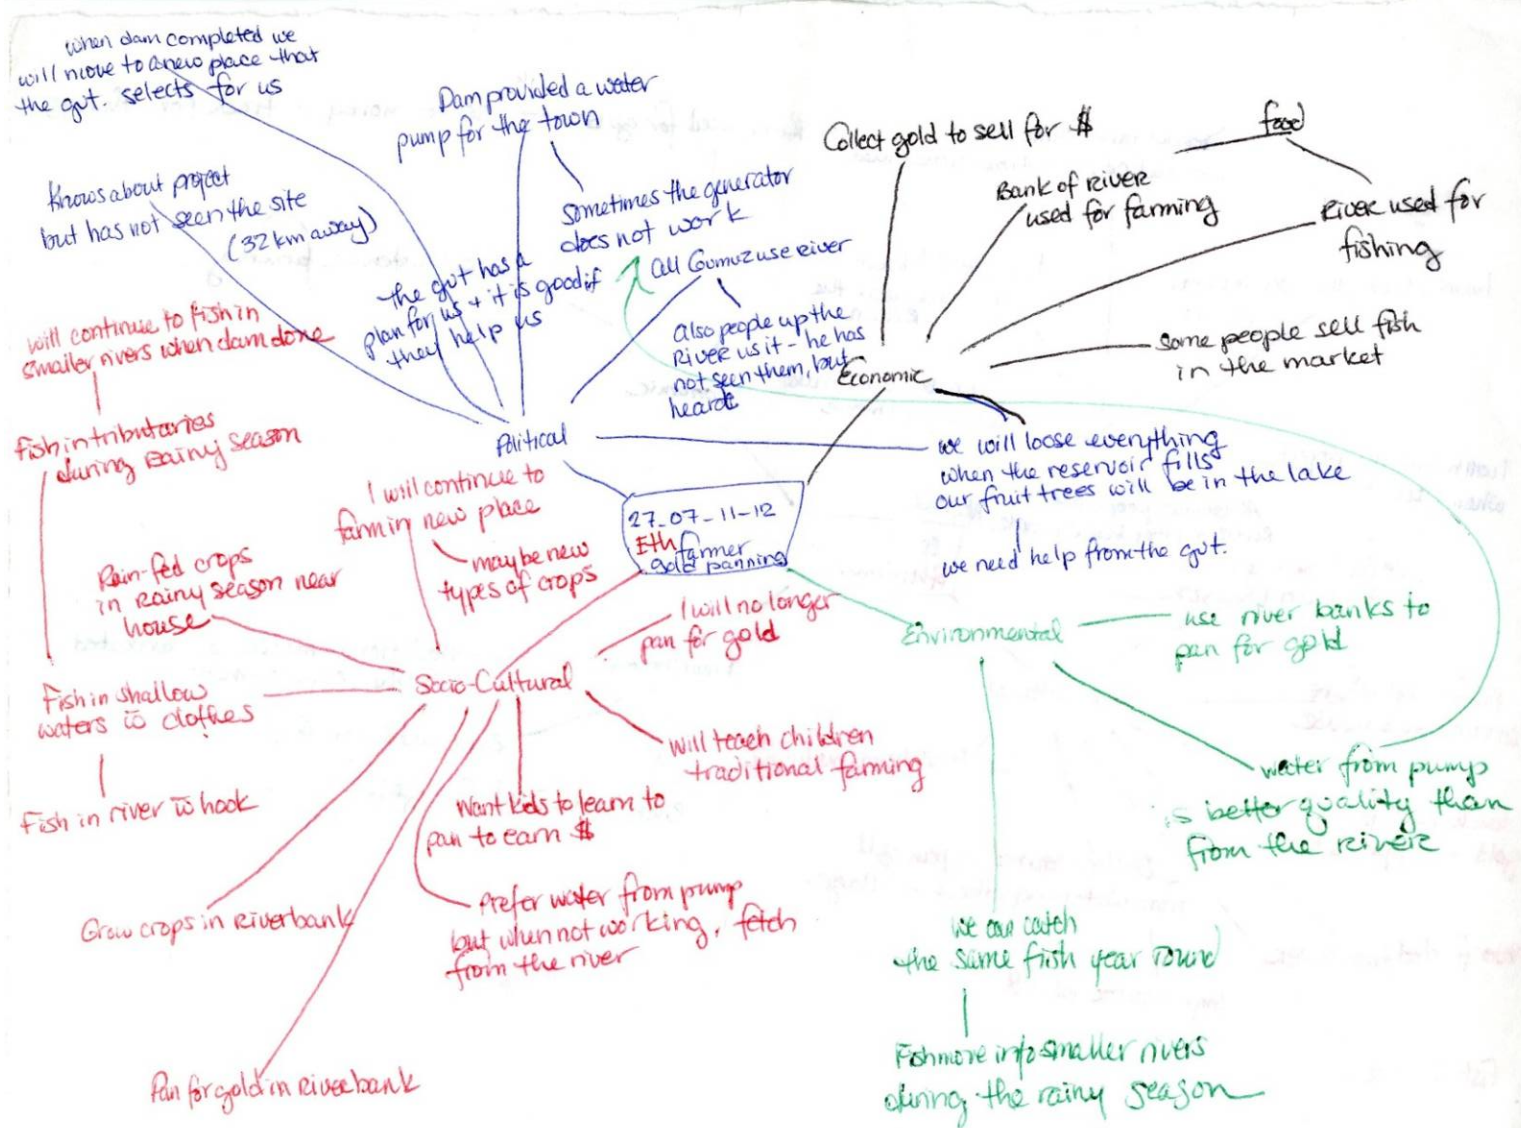 when dam completed we
will move to a new place that
the gvt. selects for us
Dam provided a water
pump for the town
sometimes the generator
does not work
Knows about project
but has not seen the site
(32 km away)
the gvt has a
plan for us + it is good if
they help us
all Gumuz use river
Also people up the
River us it - he has
not seen them, but
heard
Political
Collect gold to sell for $
food
Bank of River
used for farming
River used for
fishing
Some people sell fish
in the market
Economic
we will loose everything
when the reservoir fills
our fruit trees will be in the lake
we need help from the gvt.
27-07-11-12
Eth farmer
gold panning
will continue to fish in
smaller rivers when dam done
fish in tributaries
during Rainy season
I will continue to
farm in new place
maybe new
types of crops
Rain-fed crops
in Rainy season near
house
I will no longer
pan for gold
Socio-Cultural
Fish in shallow
waters w̄ clothes
Fish in river w̄ hook
will teach children
traditional farming
Want kids to learn to
pan to earn $
Prefer water from pump
but when not working, fetch
from the river
Grow crops in Riverbank
Pan for gold in River bank
Environmental
use river banks to
pan for gold
water from pump
is better quality than
from the river
we can catch
the same fish year round
Fish move into smaller rivers
during the rainy season